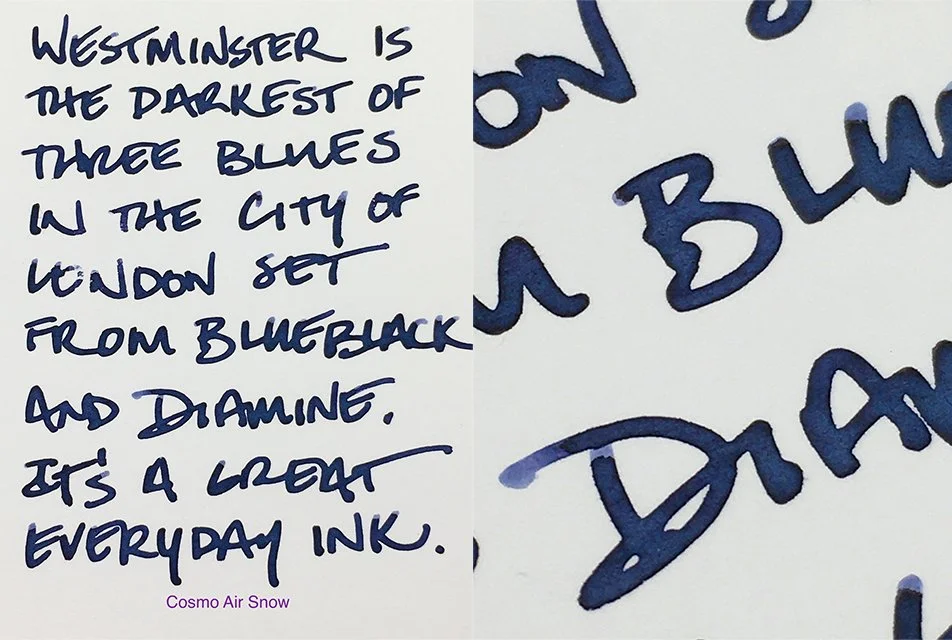 WESTMINSTER IS
THE DARKEST OF
THREE BLUES
IN THE CITY OF
LONDON SET
FROM BLUEBLACK
AND DIAMINE.
IT'S A GREAT
EVERYDAY INK.
Cosmo Air Snow
ON
M BLUE
DIAM